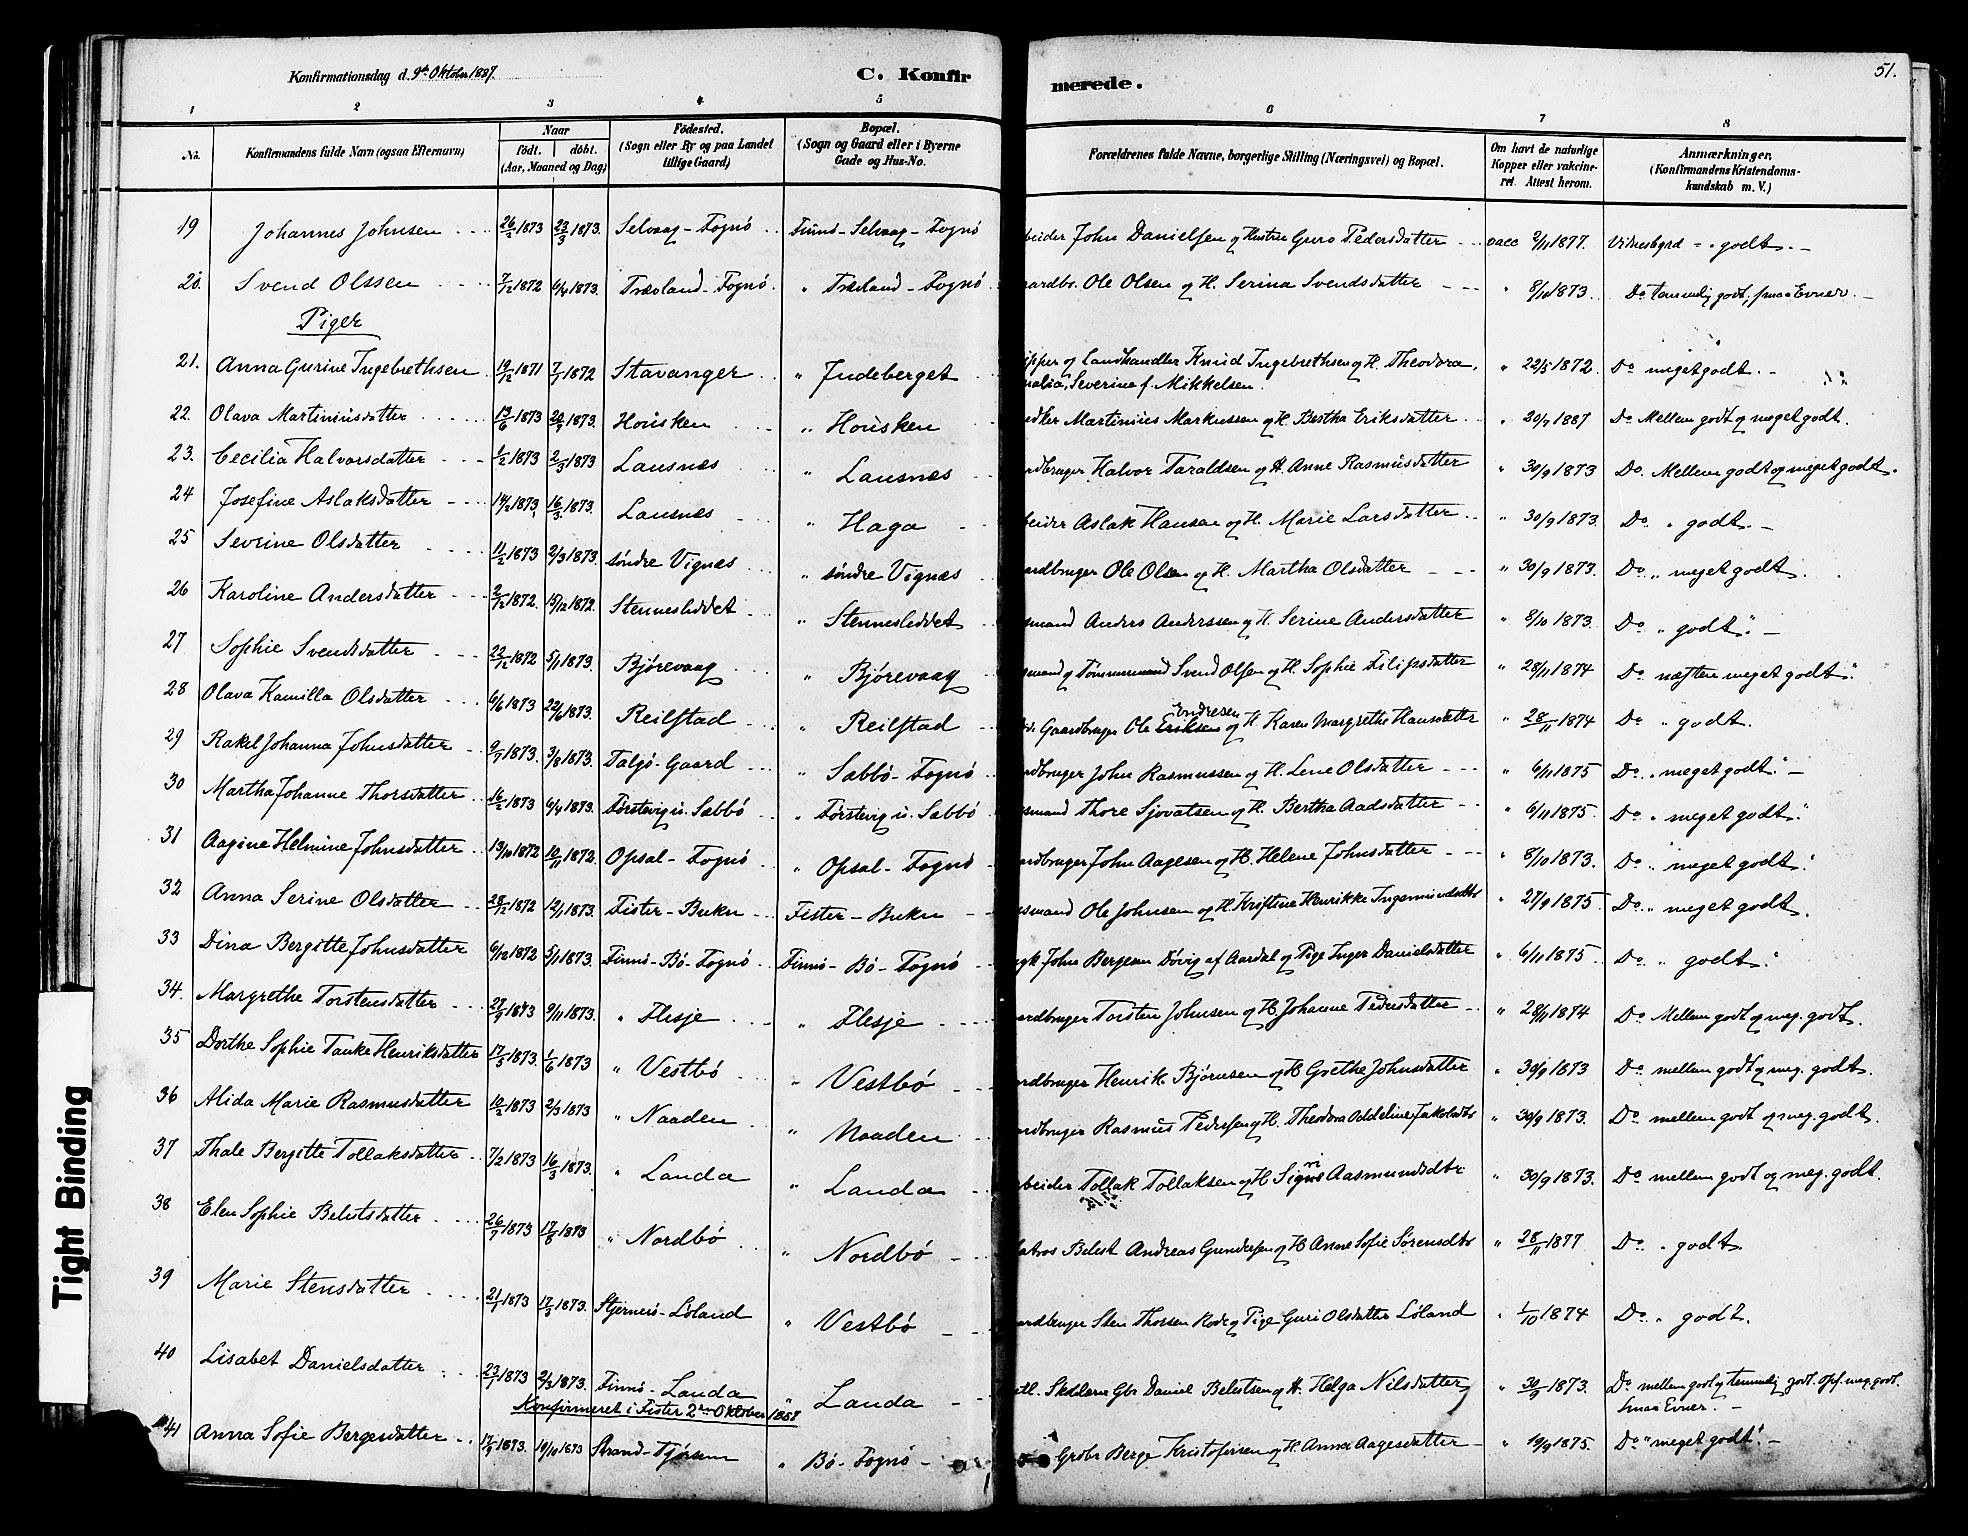 Konfirmationsdag d. 9de Oktober 1887.
C. Konfir
merede.
51.
1 2 3 4 5 6 7 8
No. Konfirmandens fulde Navn (ogsaa Efternavn) Naar födt. döbt. (Aar, Maaned og Dag) Födested. (Sogn eller By og paa Landet tillige Gaard) Bopæl. (Sogn og Gaard eller i Byerne Gade og Hus-No. Forældrenes fulde Navne, borgerlige Stilling (Næringsvei) og Bopæl. Om havt de naturlige Kopper eller vakcineret. Attest herom. Anmærkninger. (Konfirmandens Kristendomskundskab m. V.)
19 Johannes Johnsen 26/2 1873 23/3 1873. Selvaag - Fognø Finnø - Selvaag - Fognø beider John Danielsen og Hustru Guro Pedersdatter vacc 2/11 1877. Vidnesbyrd - godt. -
20. Svend Olssen 7/12 1872 6/4 1873. Trævland - Fognø " Trævland - Fognø aardbr. Ole Olsen og H. Serina Svendsdatter " 8/10 1873. Do temmelig godt, smaa Evner. -
Piger
21. Anna Gurine Ingebrethsen 19/12 1871 7/7 1872 Stavanger " Judeberget ipper og Landhandler Knud Ingebrethsen og H. Theodora, " 22/5 1872. Do meget godt. -
malia, Severine f. Mikkelsen.
22. Olava Martiniusdatter 13/6 1873 20/7 1873. Housken " Housken edker Martinius Markussen og H. Bertha Eriksdatter " 20/9 1887 Do Mellem godt og meget godt.
23. Cecilia Halvorsdatter 1/2 1873 2/3 1873 Lausnes " Lausnes ardbruger Halvor Taraldsen og H. Anne Rasmusdatter " 30/9 1873 Do. Mellem godt og meget godt.
24 Josefine Aslaksdatter 14/2 1873, 16/3 1873. Lausnes " Haga beider Aslak Hansen og H. Marie Larsdatter " 30/9 1873 Do. " godt. -
25 Sevrine Olsdatter 11/2 1873 2/3 1873. søndre Vignæs " søndre Vignæs ardbruger Ole Olsen og H. Martha Olsdatter " 30/9 1873. Do. " meget godt.
26 Karoline Andersdatter 2/12 1872. 15/12 1872. Stennesleddet " Stennesleddet smand Anders Anderssen og H. Serine Andersdatter " 8/10 1873. Do " godt". -
27 Sophie Svendsdatter 22/12 1872 5/1 1873. Bjørevaag " Bjørevaag smand og Tømmermand Svend Olsen og H. Sophie Filipsdatter " 28/11 1874 Do næsten meget godt".
28 Olava Kamilla Olsdatter 6/6 1873 22/6 1873. Reilstad " Reilstad Gaardbruger Ole Eriksen Endresen og H. Karen Margrethe Hansdattr " 28/11 1874 Do " godt.
29 Rakel Johanna Johnsdatter 9/7 1873. 3/8 1873. Talgø - Gaard " Sæbbø - Fognø ardbruger John Rasmussen og H. Lene Olsdatter " 6/11 1875 Do. " meget godt" -
30 Martha Johanne Thorsdatter 16/2 1873 6/4 1873. Førstevig u. Sæbbø " Førstevig u. Sæbbø smand Thore Sjovatsen og H. Bertha Aadsdatter " 6/11 1875. Do. " meget godt"
31 Aagine Helmine Johnsdatter 13/10 1872 10/11 1872. Opsal - Fognø " Opsal - Fognø ardbruger John Aagesen og H. Helene Johnsdatter " 8/10 1873. Do " meget godt"
32 Anna Serine Olsdatter 28/12 1872 12/1 1873. Fister - Bukn Fister - Bukn smand Ole Johnsen og H. Kristine Henrikke Ingemundsdtr " 27/9 1875. Do. " meget godt.
33 Dina Bergitte Johnsdatter 6/12 1872 5/1 1873. Finnø - Bø - Fognø Finnø - Bø - Fognø ngk John Bergesen Døvig af Aardal og Pige Inger Danielsdatter " 6/11 1875. Do " godt"
34. Margrethe Torstensdatter 27/9 1873 9/11 1873. " Flesje " Flesje ardbruger Torsten Johnsen og H. Johanne Pedersdatter " 28/11 1874 Do. Mellem godt og meg. godt.
35 Dorthe Sophie Tanke Henriksdatter 17/5 1873. 1/6 1873 " Vestbø " Vestbø ardbruger Henrik Bjørnsen og H Goethe Johnsdatter " 30/9 1873 Do. mellem godt og meg. godt.
36 Alida Marie Rasmusdatter 10/2 1873 2/3 1873 " Naaden " Naaden ardbruger Rasmus Pedersen og H. Theodora Addeline Jakobsdtr " 30/9 1873. Do mellem godt og meg. godt.
37 Thale Bergitte Tollaksdatter 7/2 1873 16/3 1873. " Landa " Landa beider Tollak Tollaksen og H. Signe Aasmundsdtr " 30/9 1873. Do mellem godt og meg. godt.
38 Elen Sophie Belestsdatter 26/7 1873 17/8 1873 " Nordbø " Nordbø atros Belest Andreas Gundersen og H Anne Sofie Sørensdtr " 28/11 1877 Do. " godt
39 Marie Stensdatter 21/1 1873 17/3 1873. Stjernerø - Løland " Vestbø ardbruger Sten Thorsen Rode og Pige Guri Olsdatter Løland " 1/10 1874 Do. " godt.
40 Lisabet Danielsdatter 23/1 1873 2/3 1873. Finnø - Landa " Landa Gbr Daniel Belestsen og H. Helga Nilsdatter " 30/9 1873. Do. mellem godt og temmelig godt. opf. meg. godt.
Smaa Evner. -
Konfirmeret i Fister 2den Oktober 1887
41 Anna Sofie Bergesdatter 17/9 1873. 19/10 1873 Strand - Fjørsem " Bø - Fognø Grdbr Berge Kristofersen og H. Anna Aagesdatter " 19/9 1875. Do " meget godt". -
Tight Binding